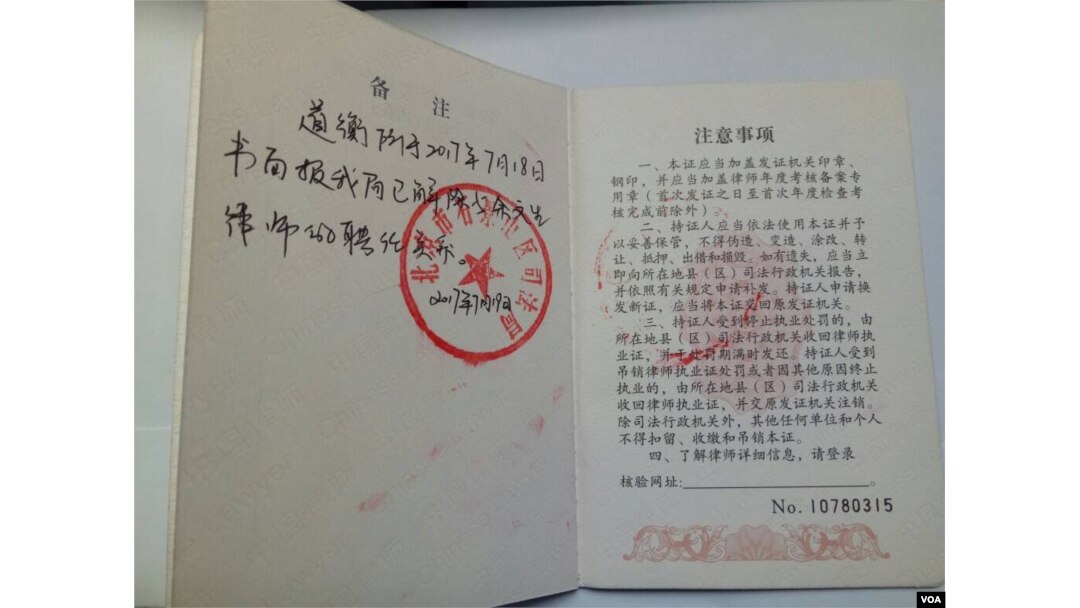 备 注
道衡所于2017年7月18日
书面报我局已解除与余文生
律师的聘任关系。
2017年7月19日
北京市石景山区司法局
注意事项
一、本证应当加盖发证机关印章、
钢印，并应当加盖律师年度考核备案专
用章（首次发证之日至首次年度检查考
核完成前除外）。
二、持证人应当依法使用本证并予
以妥善保管，不得伪造、变造、涂改、转
让、抵押、出借和损毁。如有遗失，应当立
即向所在地县（区）司法行政机关报告，
并依照有关规定申请补发。持证人申请换
发新证，应当将本证交回原发证机关。
三、持证人受到停止执业处罚的，由
所在地县（区）司法行政机关收回律师执
业证，并于处罚期满时发还。持证人受到
吊销律师执业证处罚或者因其他原因终止
执业的，由所在地县（区）司法行政机关
收回律师执业证，并交原发证机关注销。
除司法行政机关外，其他任何单位和个人
不得扣留、收缴和吊销本证。
四、了解律师详细信息，请登录
核验网址:。
No. 10780315
VOA